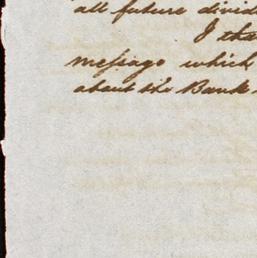 all future divid
I tha
message which
about the Bank